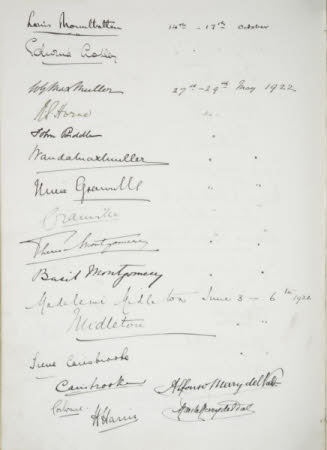 Louis Mountbatten 14th – 17th October
Edwina Ashley
W G Max Muller 27th – 29th May 1922
John Biddle
Wanda Max Muller
Nina Granville
Granville
Theresa Montgomery
Basil Montgomery
Madeleine Midleton June 3 – 6th 1922
Midleton
Irene Carisbrooke
Carisbrooke Alfonso Merry del Val
Merry del Val
H Harris